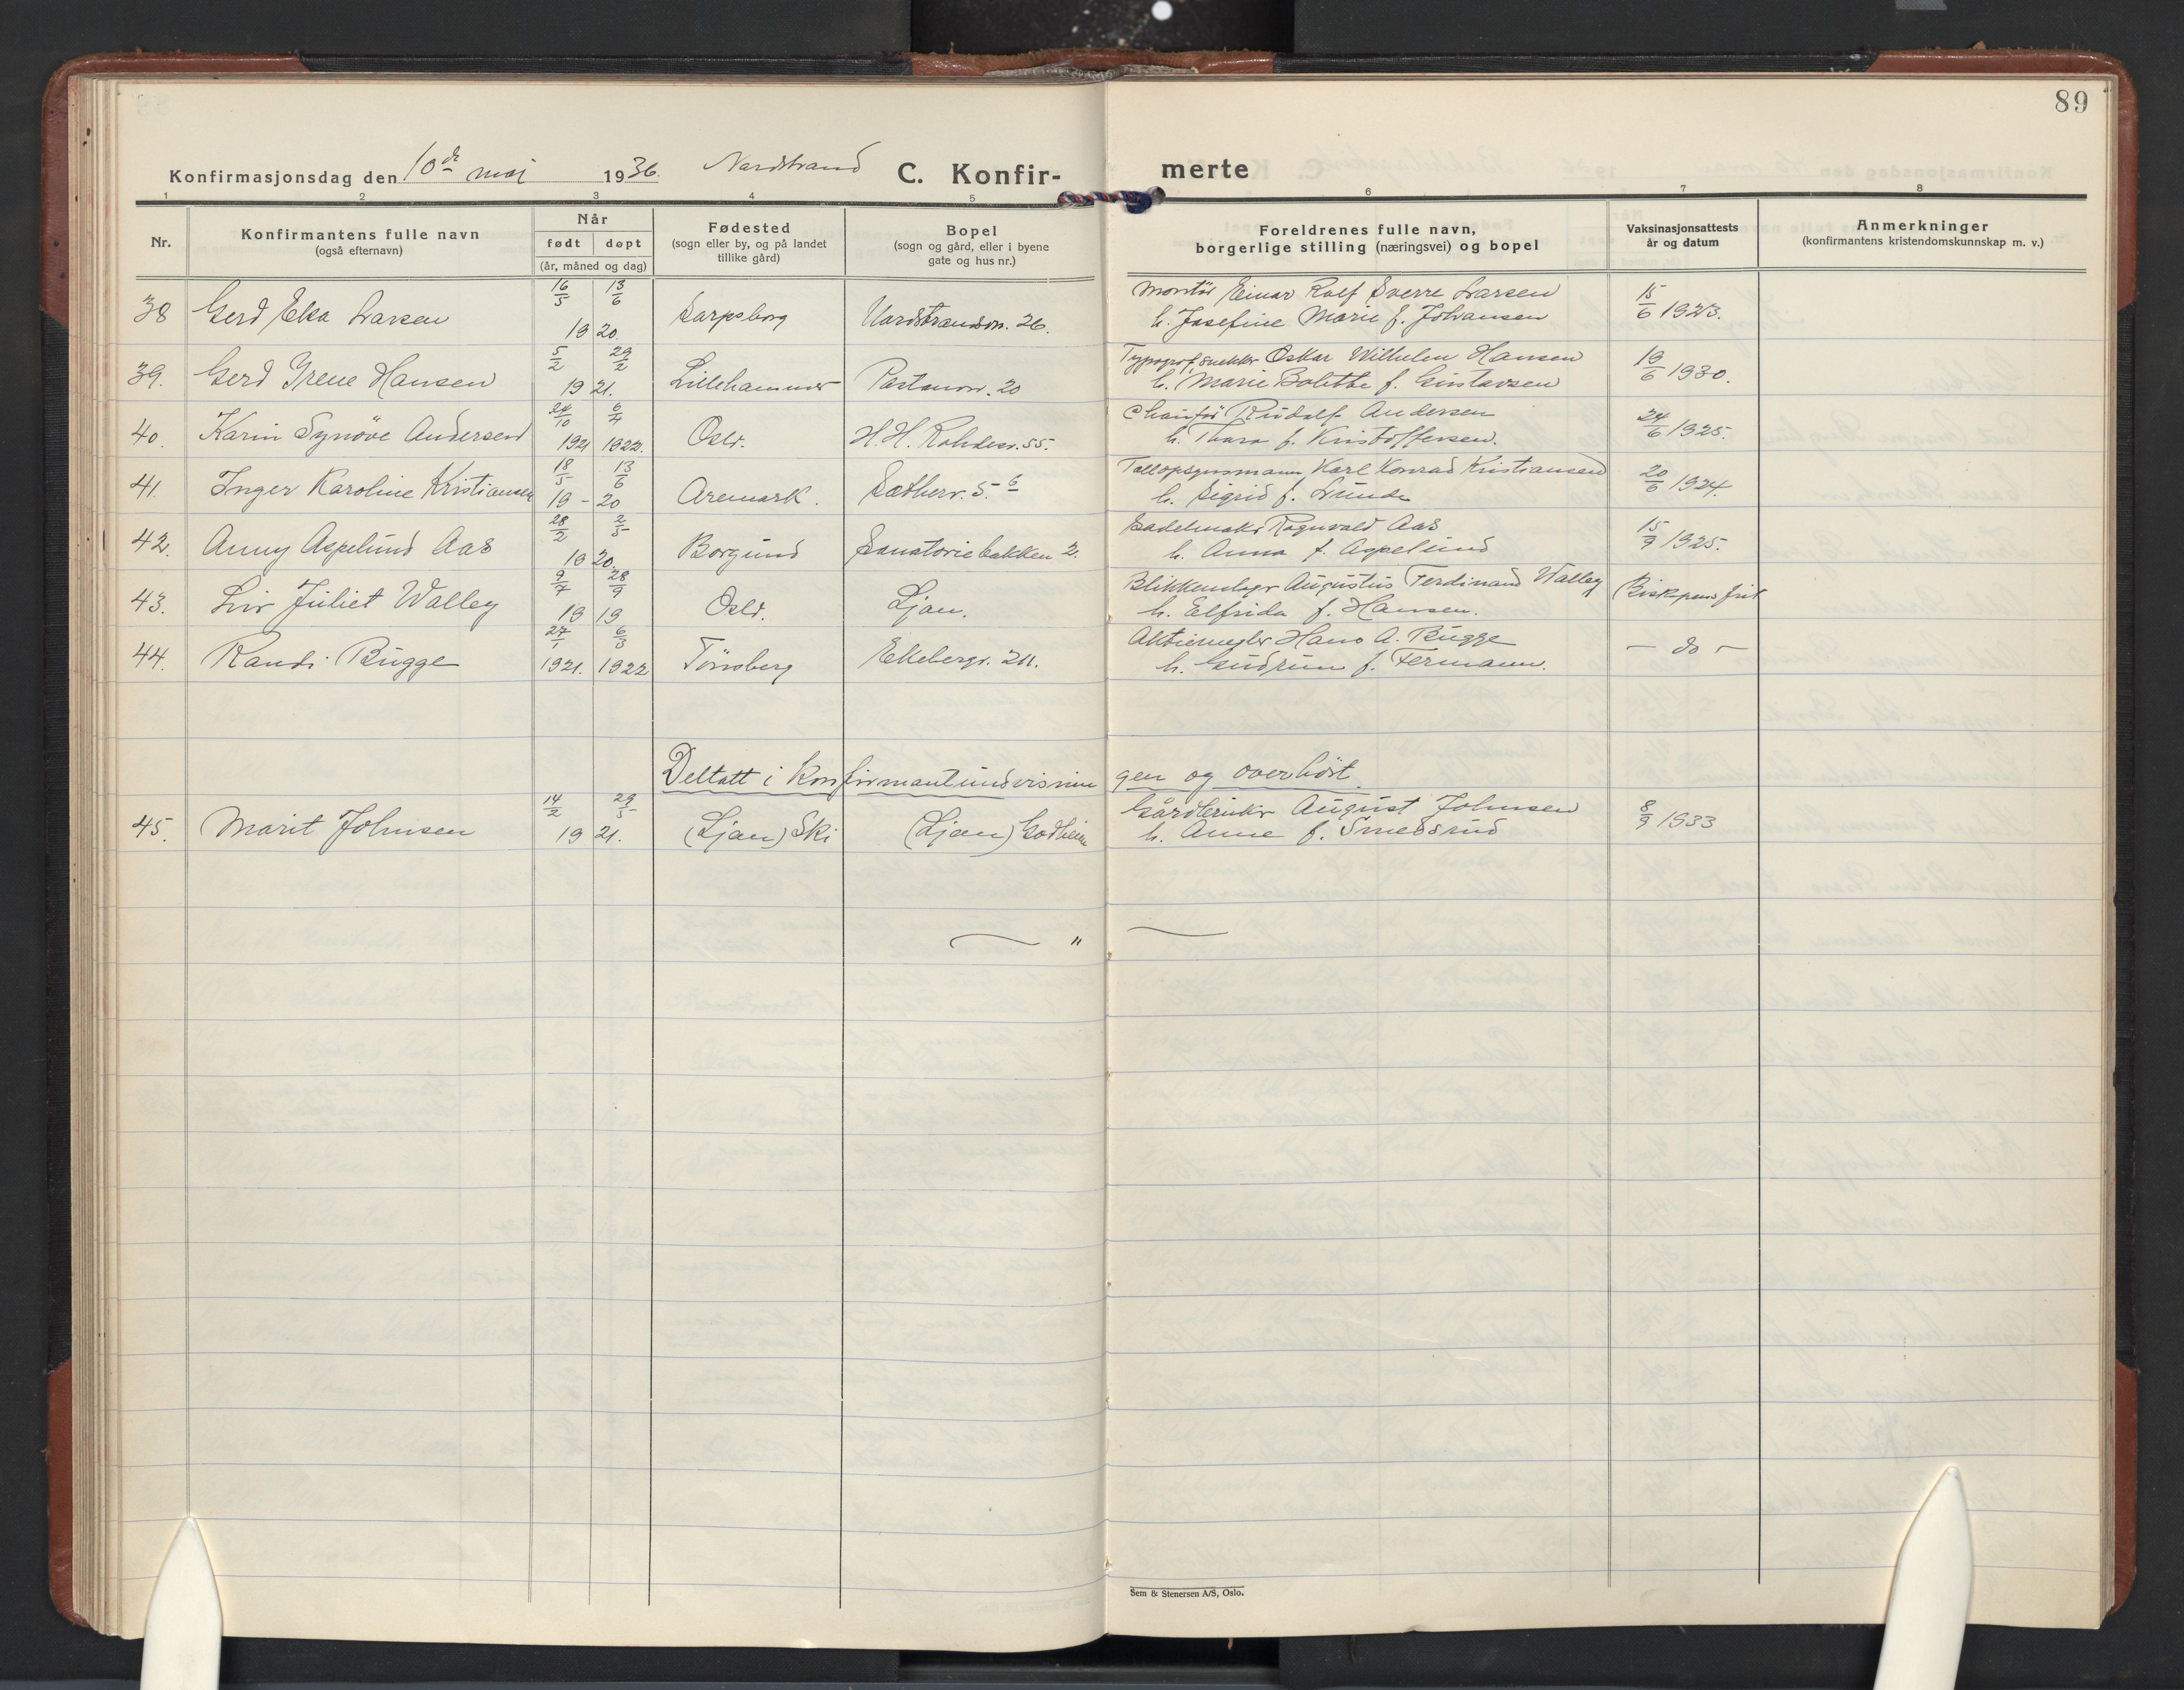 89
Konfirmasjonsdag den 10de mai 1936. Nordstrand C. Konfir- merte
1 2 3 4 5 6 7 8
Nr.
Konfirmantens fulle navn
(også efternavn)
Når
født døpt
(år, måned og dag)
Fødested
(sogn eller by, og på landet
tillike gård)
Bopel
(sogn og gård, eller i byene
gate og hus nr.)
Foreldrenes fulle navn,
borgerlige stilling (næringsvei) og bopel
Vaksinasjonsattests
år og datum
Anmerkninger
(konfirmantens kristendomskunnskap m. v.)
16/5 13/6 Montør Einar Rolf Sverre Larsen
38 Gerd Elsa Larsen 1920. Sarpsborg Nordstrandsv. 26. h. Josefine Marie f. Johansen 15/6 1923.
5/2 29/2 Typograf, snekker Oskar Wilhelm Hansen
39. Gerd Irene Hansen 1921. Lillehammer 20 h. Marie Bolette f. Gustavsen 19/6 1930.
24/10 6/4 Chaufør Rudolf Andersen
40. Karin Synöve Andersen 1921 1922. Oslo. H. H. 55. h. Thora f. Kristoffersen. 24/6 1925.
18/5 13/6 Tollopsynsmann Karl Konrad Kristiansen
41. Inger Karoline Kristiansen 19-20 Aremark. Sætherv. 5. b h. Sigrid f. Lunde 20/6 1924.
28/2 2/5 Sadelmaker Ragnvald Aas
42. Anny Aspelund Aas 1920. Borgund Sanatoriebakken 2. h. Anna f. Aspelund 15/9 1925.
9/7 28/9 Blikkenslager Augustus Ferdinand Walley
43. Liv Juliet Walley 1919 Oslo. Ljan. h. Elfrida f. Hansen. Biskopens frit
27/1 6/3 Aktiemegler Hans A. Bugge
44. Randi Bugge 1921. 1922 Tönsberg Ekebergv. h. Gudrun f. Fermann. – do –
Deltatt i konfirmantundvisningen og overhört.
14/2 29/5 Gårdbruker August Johnsen
45. Marit Johnsen 1921. (Ljan) Ski (Ljan) Godheim h. Anne f. Smedsrud 8/9 1933
— " —
Sem & Stenersen A/S, Oslo.